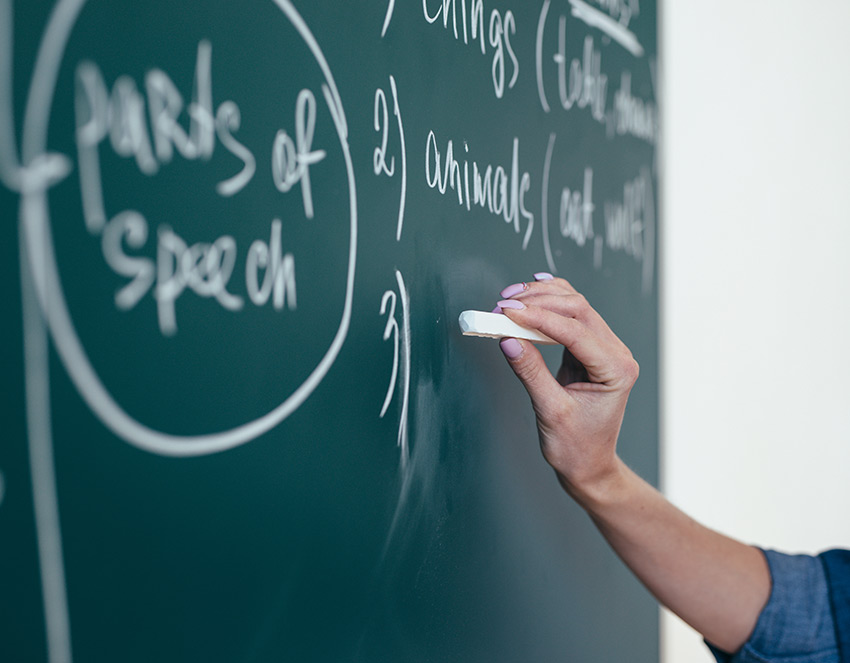 parts of
speech
things (table,
2) animals (cat, wolf)
3)